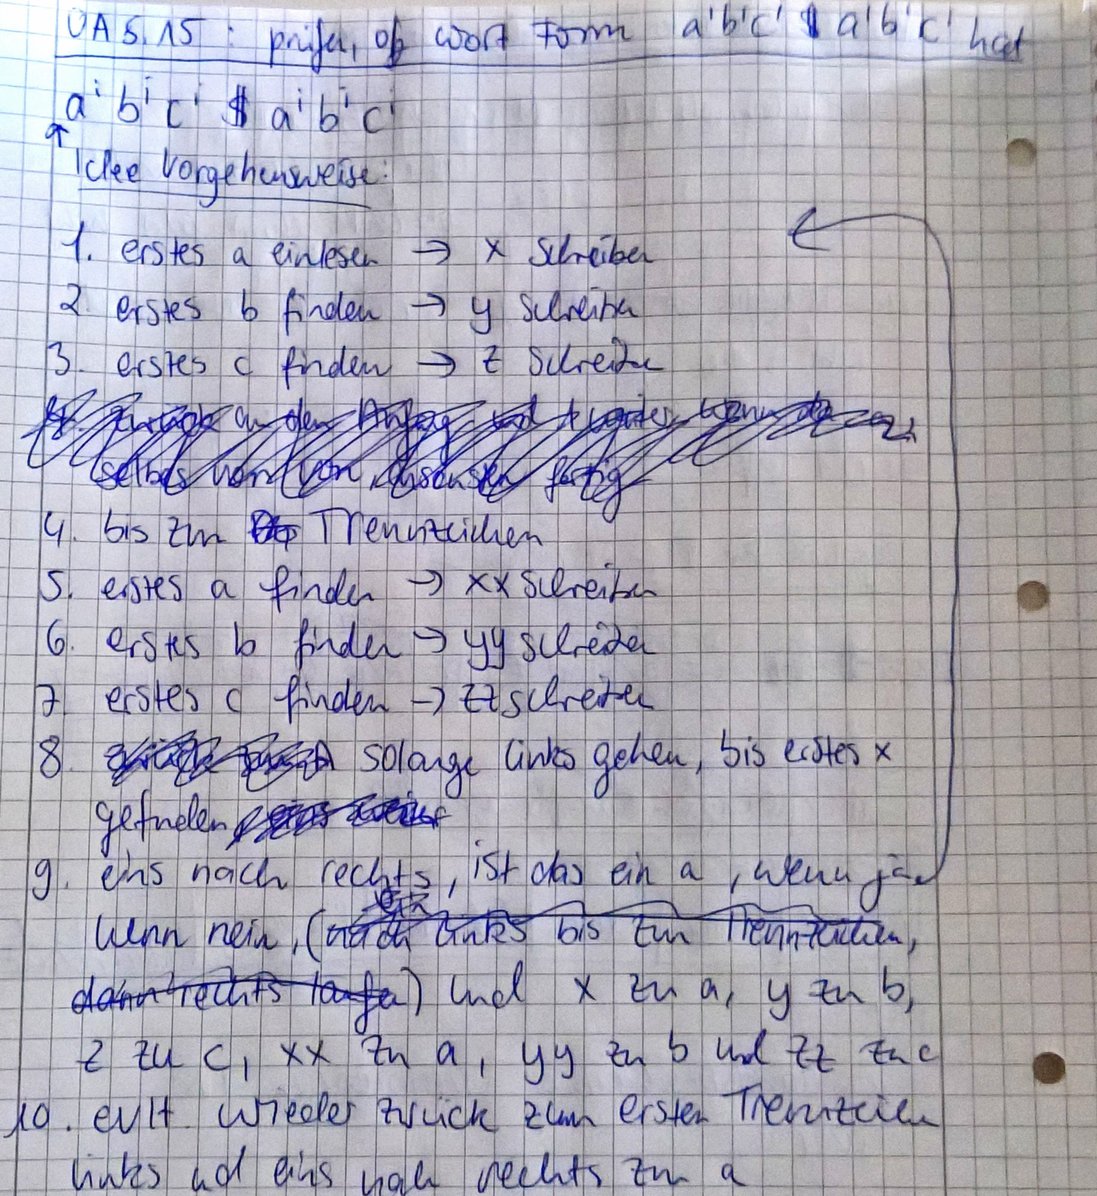 ÜA 5.15: prüfen, ob Wort Form aⁱbⁱcⁱ $ aⁱbⁱcⁱ hat
aⁱ bⁱ cⁱ $ aⁱ bⁱ cⁱ
↑
Idee Vorgehensweise:
1. erstes a einlesen → x schreiben
2. erstes b finden → y schreiben
3. erstes c finden → z schreiben
4. bis zum Trennzeichen
5. erstes a finden → xx schreiben
6. erstes b finden → yy schreiben
7. erstes c finden → zz schreiben
8. solange links gehen, bis erstes x
gefunden
9. eins nach rechts, ist das ein a, wenn ja
wenn nein, (nach links bis zum Trennzeichen,
dann rechts ) und x zu a, y zu b,
z zu c, xx zu a, yy zu b und zz zu c
10. evlt. wieder zurück zum ersten Trennzeichen
links und eins nach rechts zum a